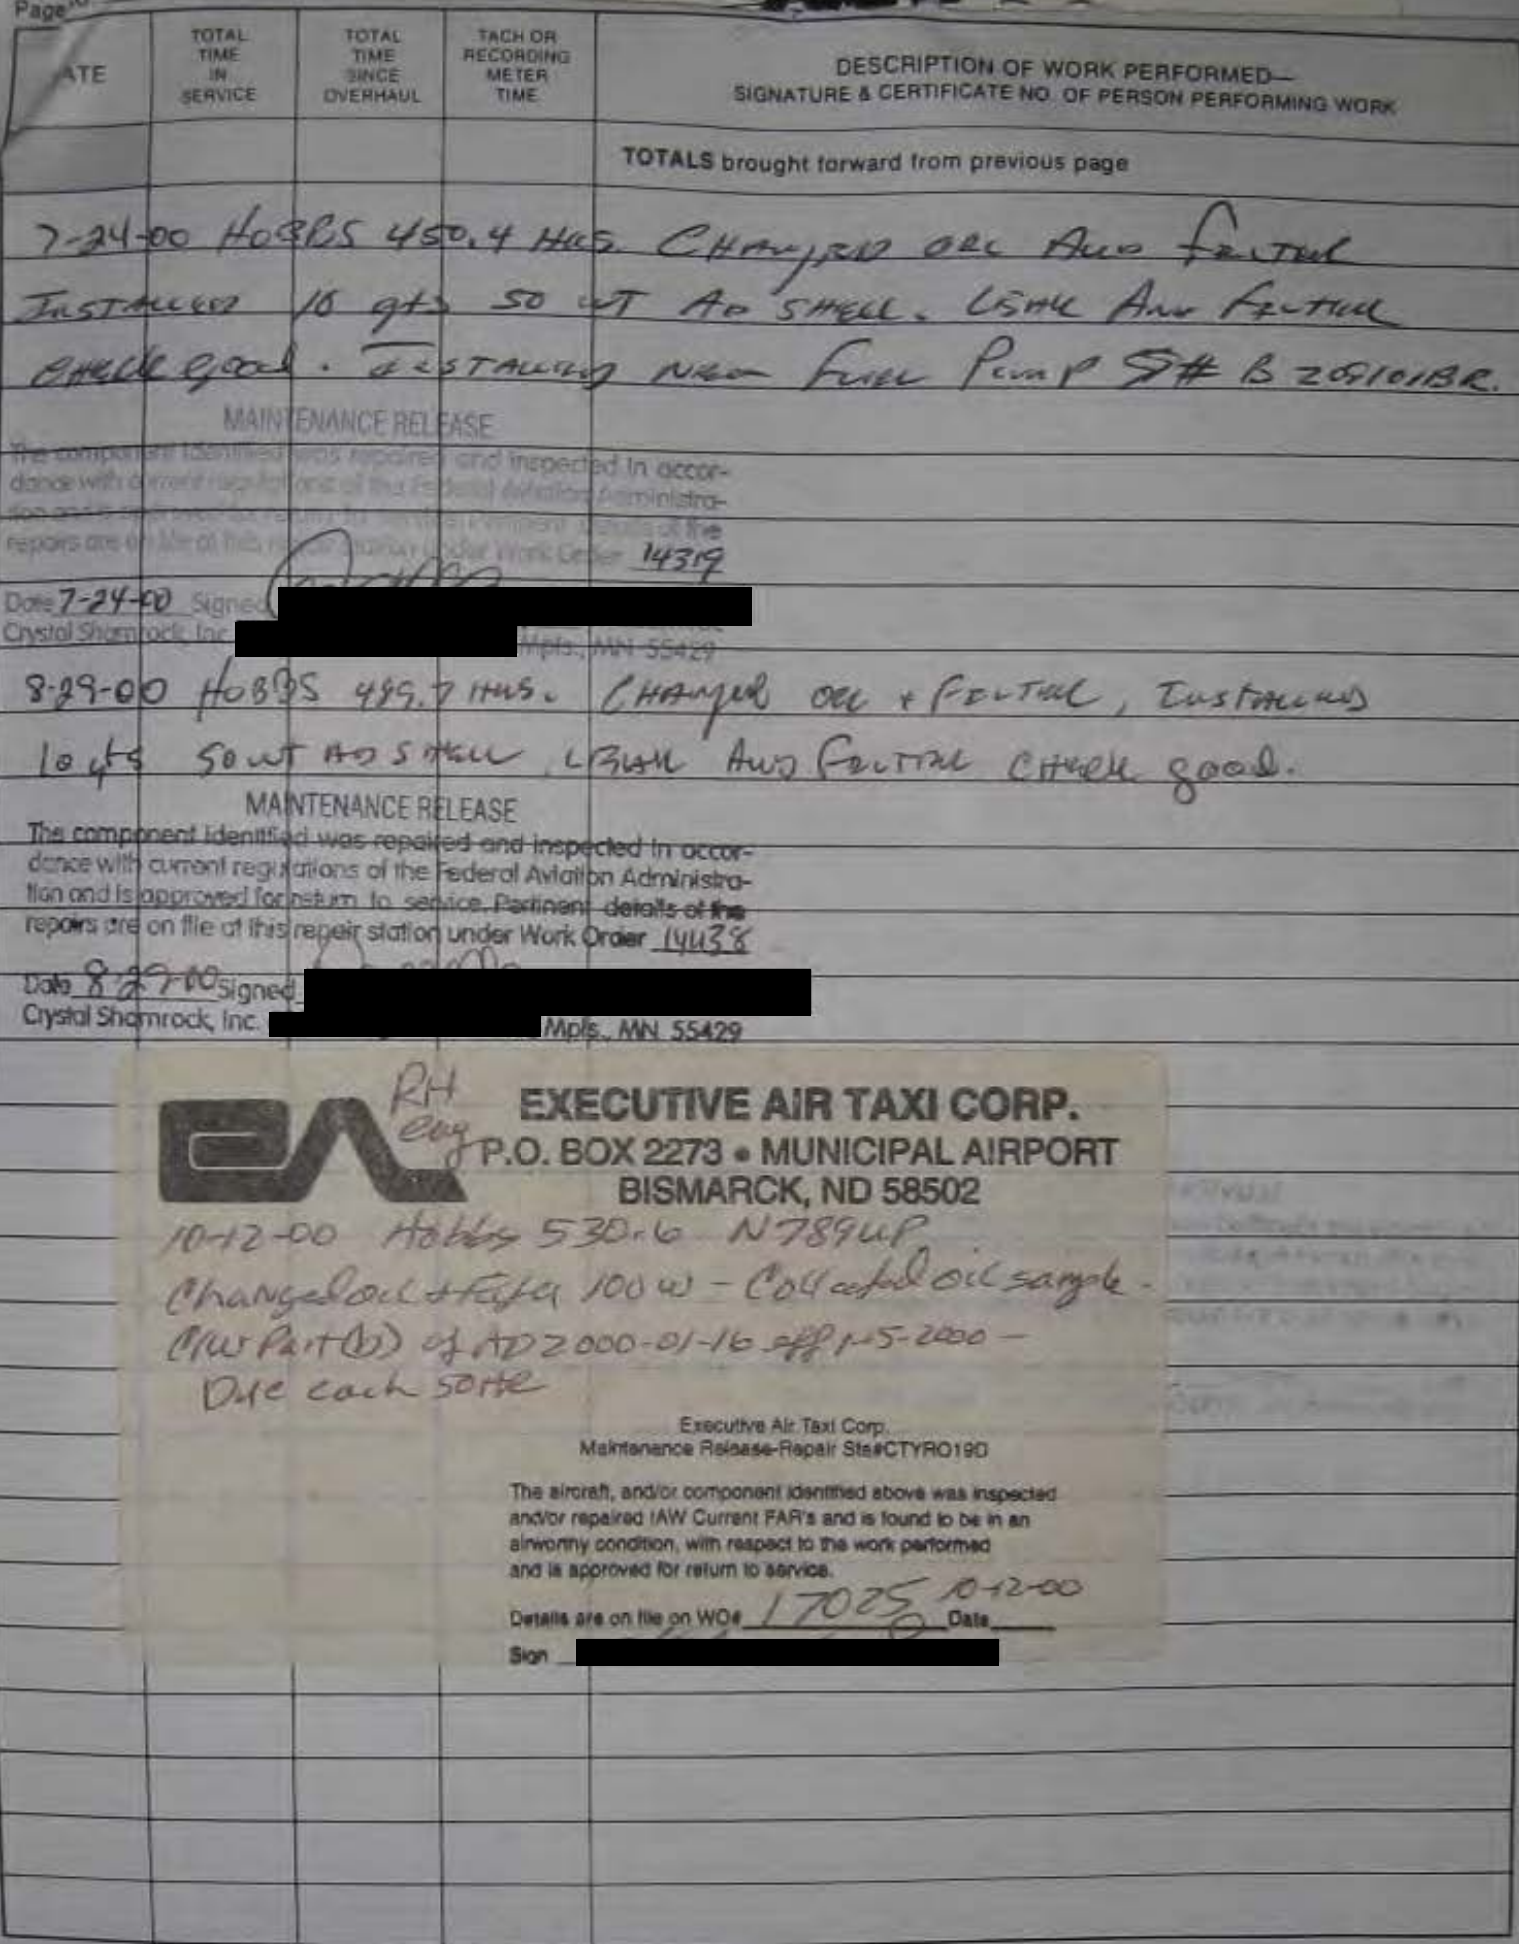 Page
ATE
TOTAL TIME IN SERVICE
TOTAL TIME SINCE OVERHAUL
TACH OR RECORDING METER TIME
DESCRIPTION OF WORK PERFORMED—
SIGNATURE & CERTIFICATE NO. OF PERSON PERFORMING WORK
TOTALS brought forward from previous page
7-24-00 HOBBS 450.4 HRS. CHANGED OIL AND FILTER
INSTALLED 10 qts 50 WT AD SHELL. LEAK AND FILTER
CHECK good. INSTALLED NEW FUEL PUMP S# B209101BR.
MAINTENANCE RELEASE
The component identified was repaired and inspected in accor-
dance with current regulations of the Federal Aviation Administra-
tion and is approved for return to service. Pertinent details of the
repairs are on file at this repair station under Work Order 14319
Date 7-24-00 Signed
Crystal Shamrock, Inc. Mpls., MN 55429
8-29-00 HOBBS 489.7 HRS. CHANGED OIL + FILTER, INSTALLED
10 qts 50 WT AD SHELL, LEAK AND FILTER CHECK good.
MAINTENANCE RELEASE
The component identified was repaired and inspected in accor-
dance with current regulations of the Federal Aviation Administra-
tion and is approved for return to service. Pertinent details of the
repairs are on file at this repair station under Work Order 14438
Date 8-29-00 Signed
Crystal Shamrock, Inc. Mpls., MN 55429
RH
eng
EA
EXECUTIVE AIR TAXI CORP.
P.O. BOX 2273 • MUNICIPAL AIRPORT
BISMARCK, ND 58502
10-12-00 Hobbs 530.6 N789UP
Changed oil + Filter 100W - Collected oil sample -
C/W Part (b) of AD 2000-01-16 eff 1-5-2000 -
Due each 50 Hr
Executive Air Taxi Corp.
Maintenance Release-Repair Sta#CTYR019D
The aircraft, and/or component identified above was inspected
and/or repaired IAW Current FAR's and is found to be in an
airworthy condition, with respect to the work performed
and is approved for return to service.
Details are on file on WO# 17025 Date 10-12-00
Sign